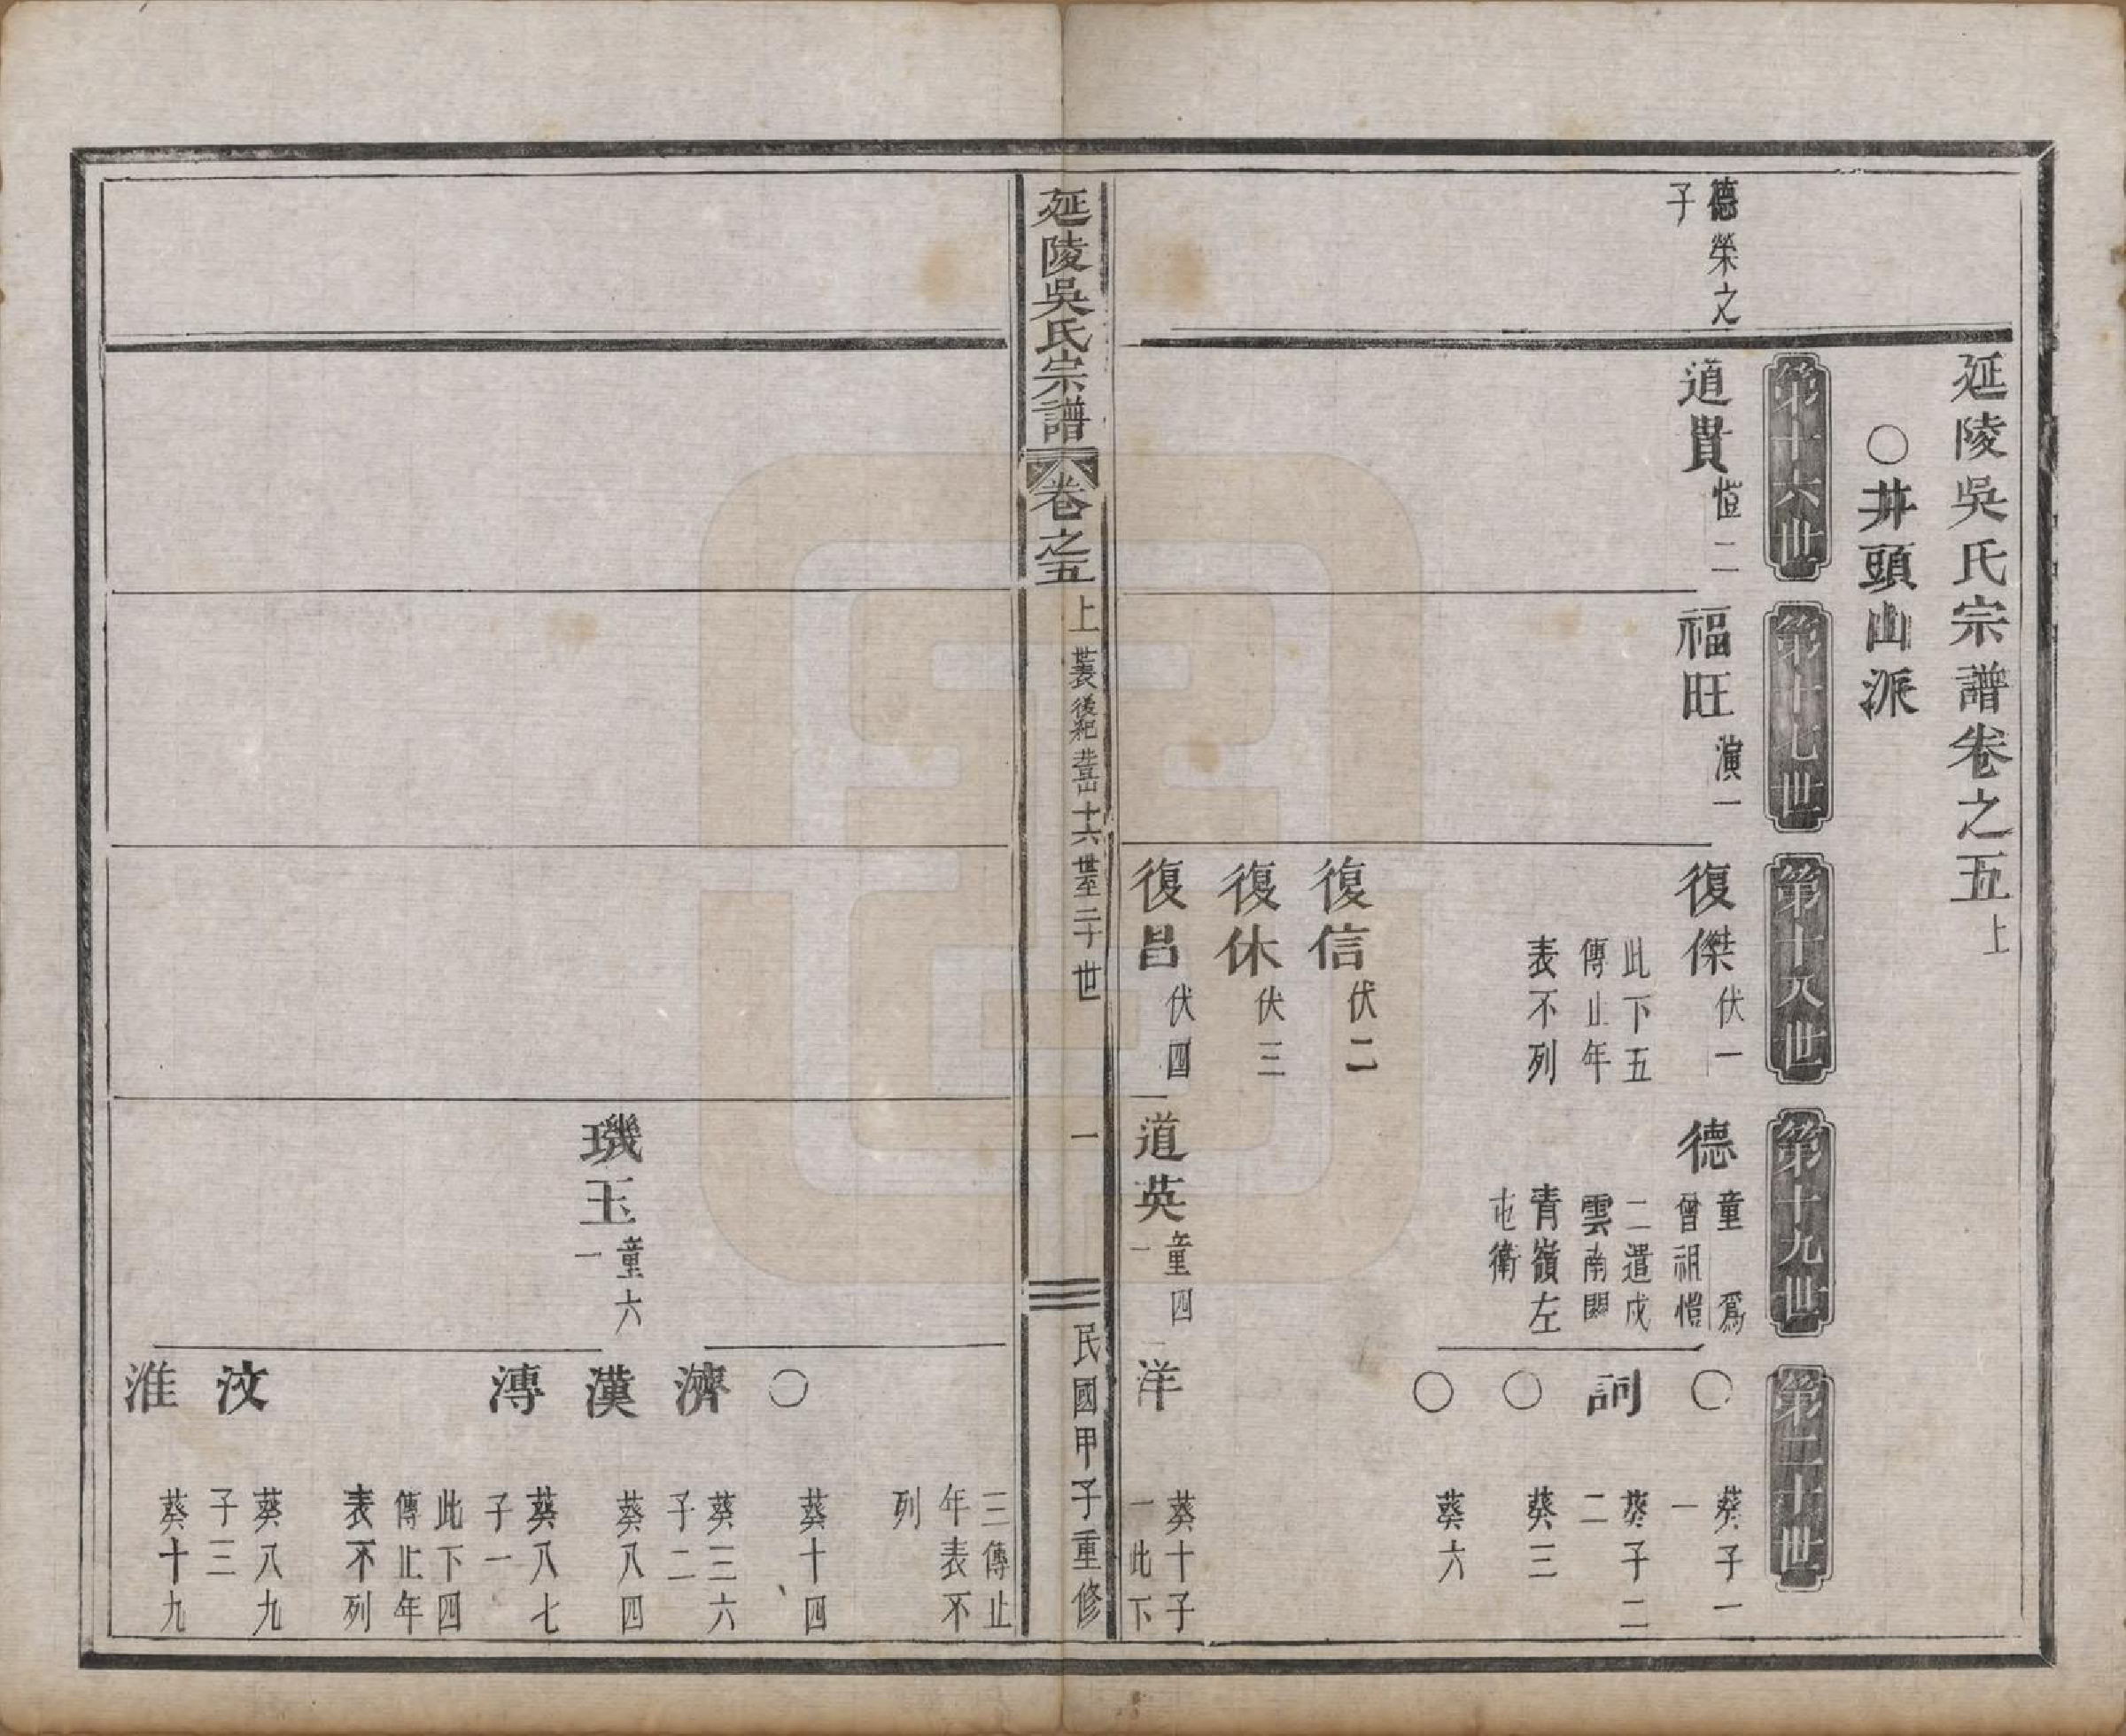 延陵吳氏宗譜卷之五上
○井頭山派
第十六世
第十七世
第十八世
第十九世
第二十世
德榮之
子
道貴
恒二
福旺
演一
復傑
伏一
此下五
傳止年
表不列
德
童 爲
曾祖愷
二遣戍
雲南關
青嶺左
屯衛
○
葵子一
一
詞
葵子二
二
○
葵三
○
葵六
復信
伏二
復休
伏三
復昌
伏四
道英
童四
一
洋
葵十子
一此下
延陵吳氏宗譜
卷之五
上
世表
後
十六世至二十世
一
民國甲子重修
三傳止
年表不
列
○
葵十四
濟
葵三六
子二
漢
葵八四
漙
葵八七
子一
此下四
傳止年
表不列
璣玉
童六
一
汶
葵八九
子三
淮
葵十九